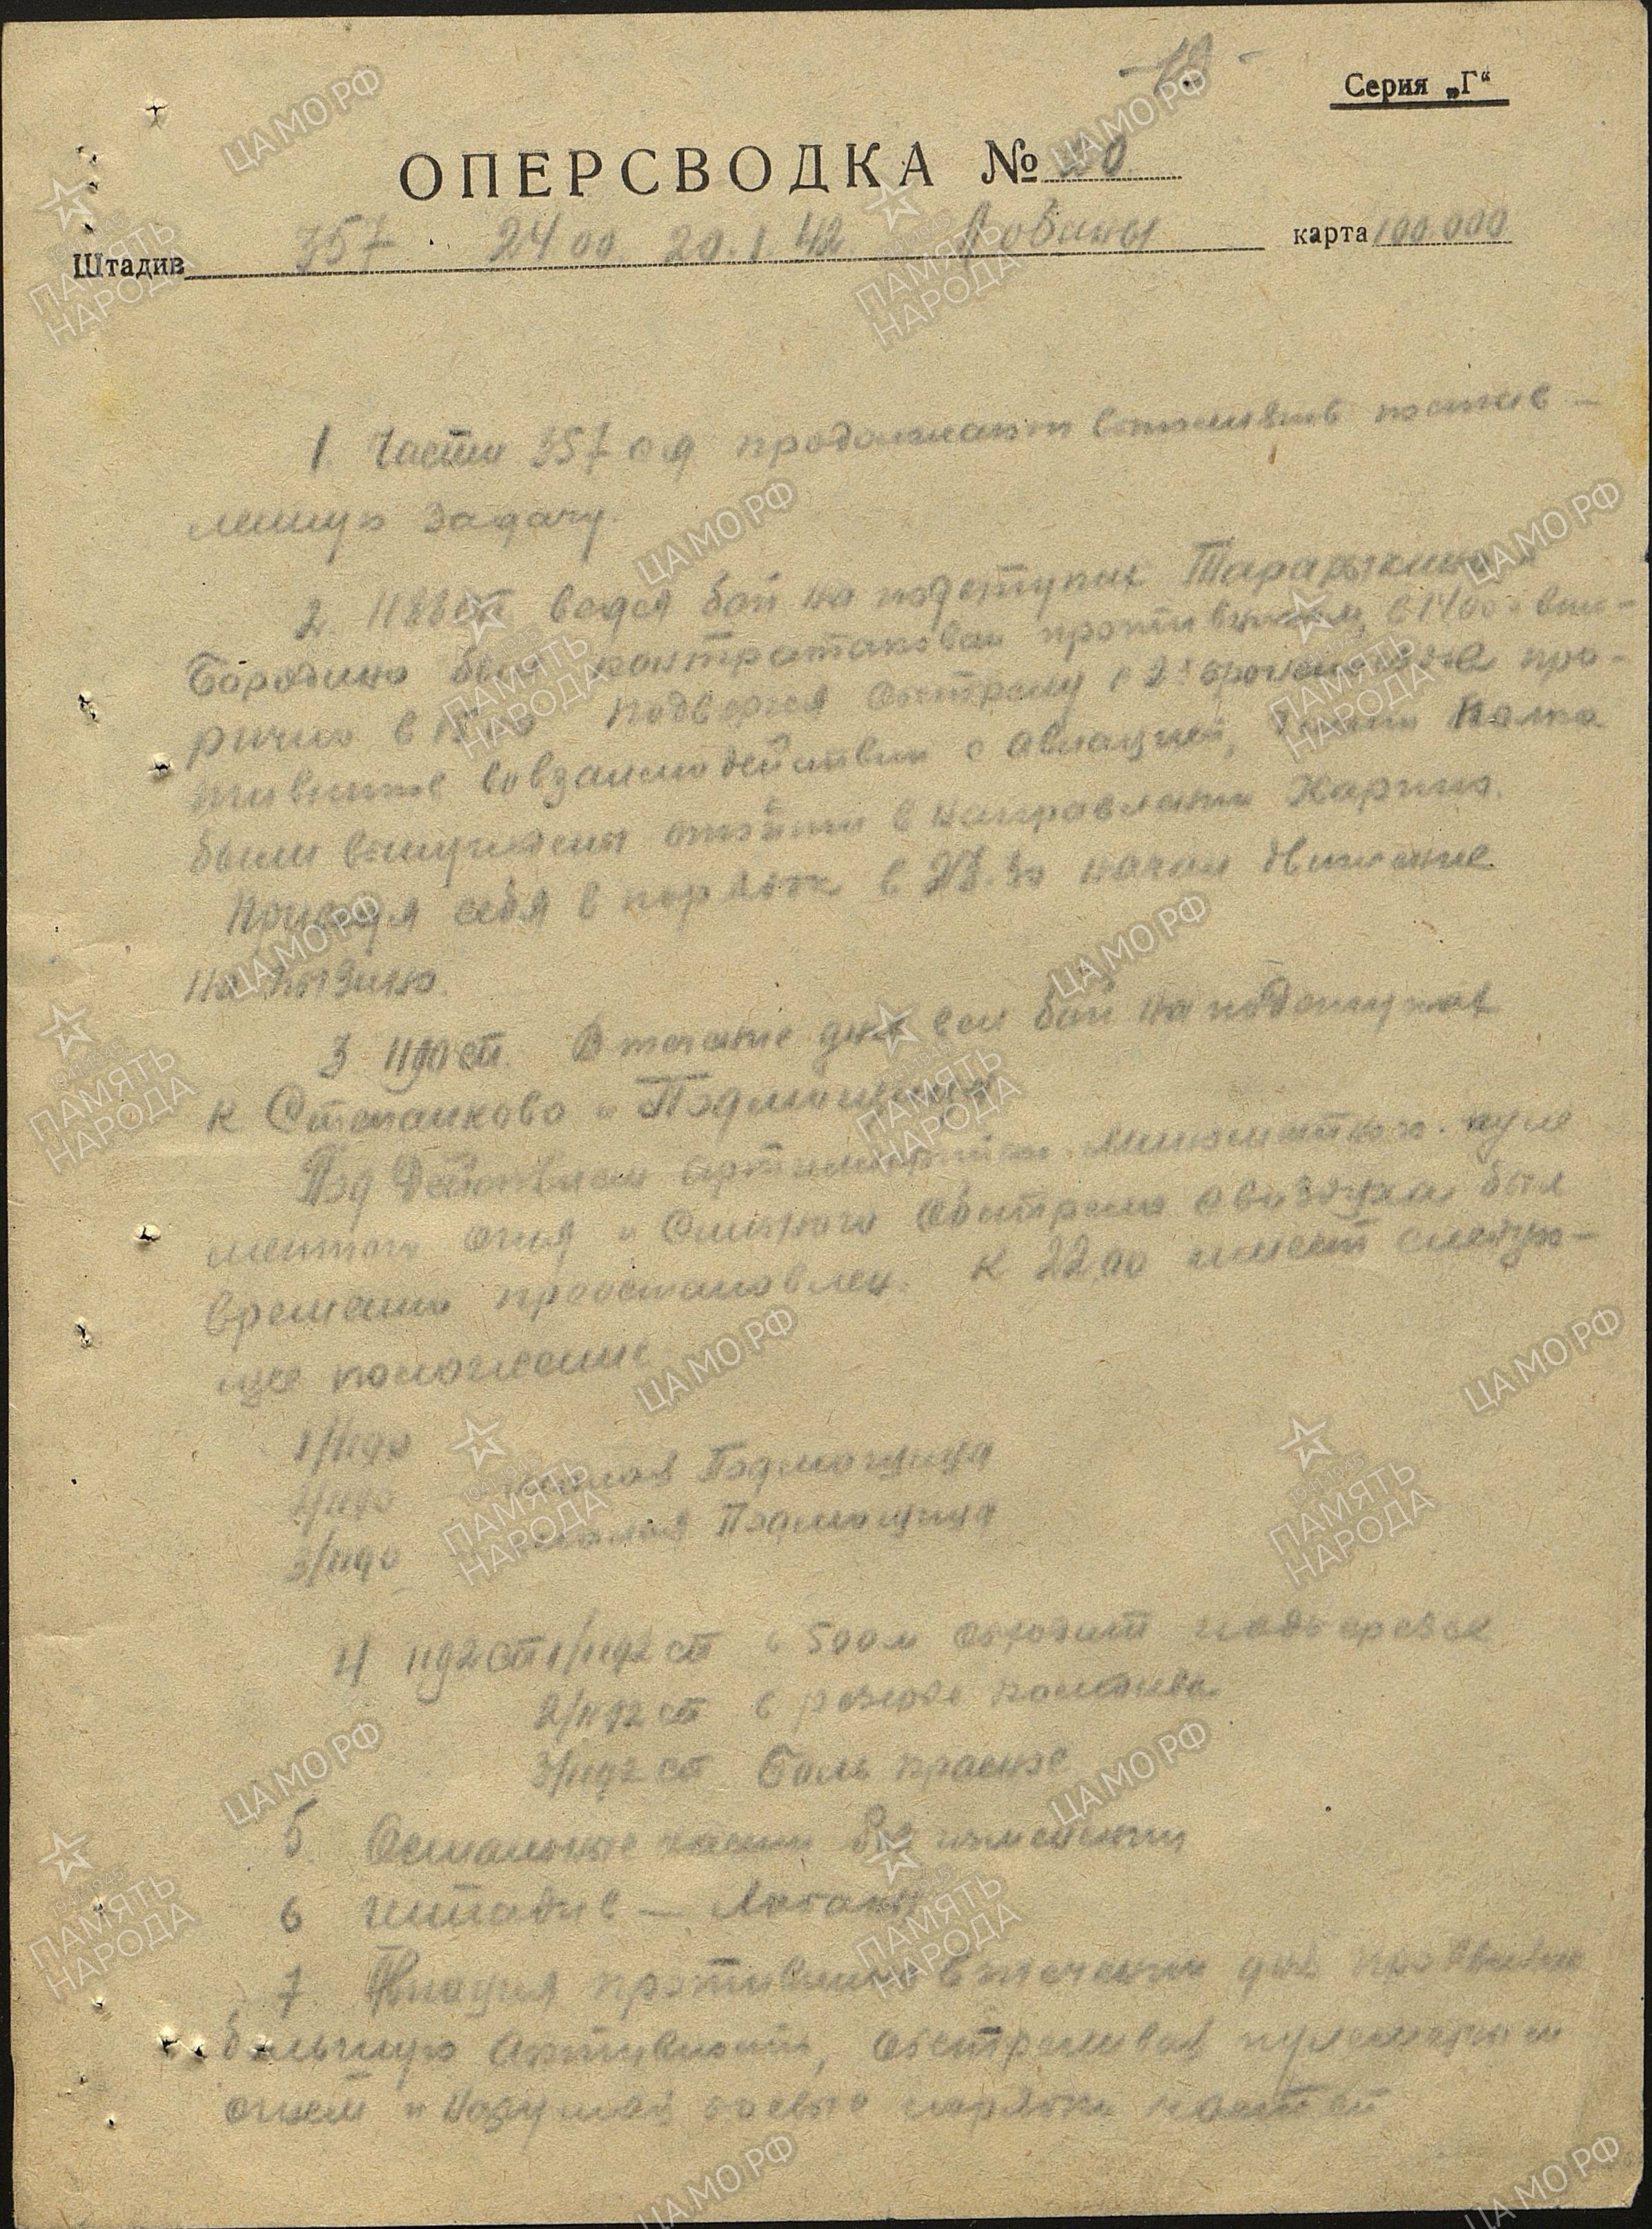 - 19 -
Серия „Г“
ОПЕРСВОДКА № 20
Штадив 357 24 00 20.1.42 Лобаны карта 100.000
1. Части 357 сд продолжают выполнять постав-
ленную задачу.
2 1188 сп ведя бой на подступах Тарарыкино и
Бородино был контратакован противником, в 14 00 и вто-
рично в 15 подвергся обстрелу с 2 бронемашин про-
тивника во взаимодействии с авиацией, роты полка
были вынуждены отойти в направлении Харино.
Приведя себя в порядок в 23.30 начал движение
на
3 1190 сп. В течение дня вел бой на подступах
к Степанково и Подмощица
Под действием артиллерийск. минометного. пуле
метного огня и сильного обстрела с воздуха был
временно приостановлен. К 22 00 имеет следую-
щее положение
1/1190
2/1190 Подмощица
3/1190 Подмощица
4 1192 сп 1/1192 сп в 500 м
2/1192 сп в резерве комдива
3/1192 сп
5. Остальные части без изменений
6 Штадив — Лобаны
7 Авиация противника в течении дня проявляла
большую активность, обстреливая пулеметным
огнем и боевые порядки частей
ЦАМО РФ
ПАМЯТЬ
НАРОДА